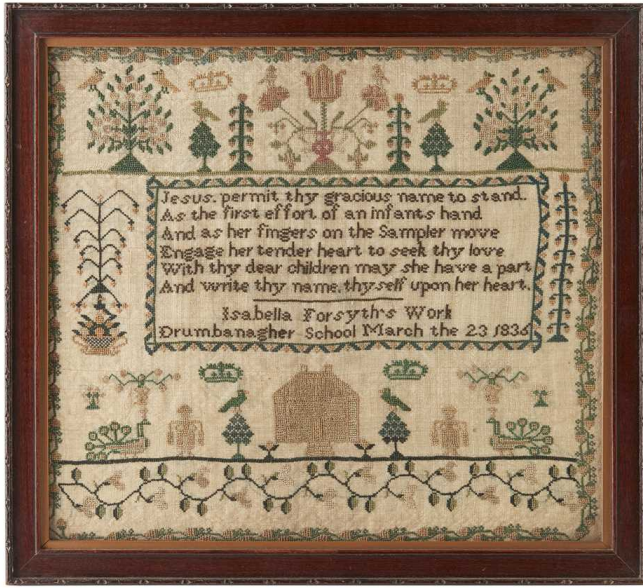 Jesus, permit thy gracious name to stand.
As the first effort of an infants hand
And as her fingers on the Sampler move
Engage her tender heart to seek thy love
With thy dear children may she have a part
And write thy name, thyself upon her heart.
Isabella Forsyth's Work
Drumbanagher School March the 23 1836